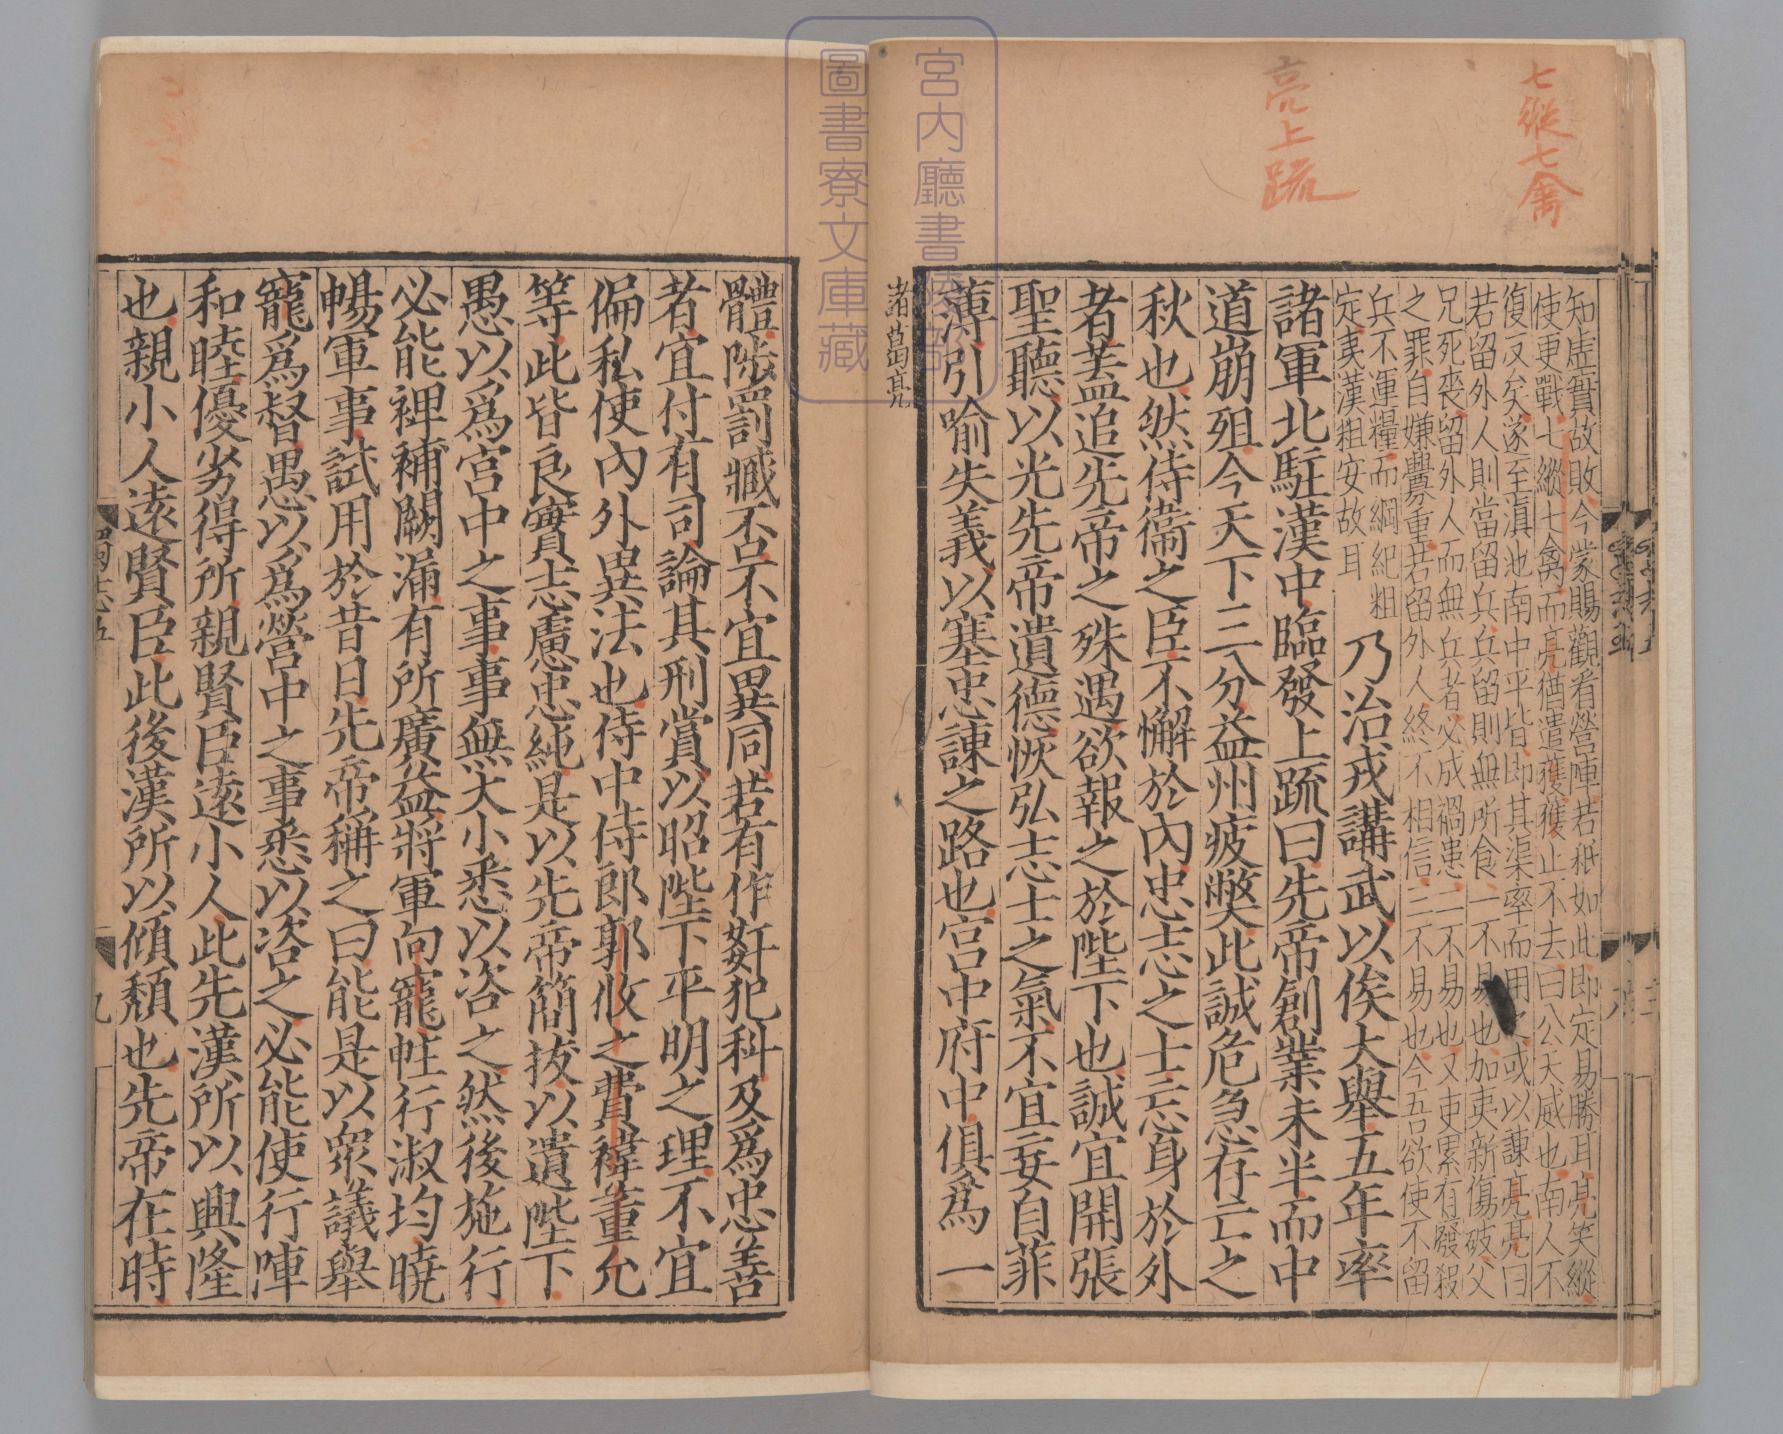 七縱七禽
亮上疏
知虛實故敗今蒙賜觀看營陣若秖如此即定易勝耳亮笑縱
使更戰七縱七禽而亮猶遣獲獲止不去曰公天威也南人不
復反矣遂至滇池南中平皆即其渠率而用之或以諫亮亮曰
若留外人則當留兵兵留則無所食一不易也加夷新傷破父
兄死喪留外人而無兵者必成禍患二不易也又吏累有廢殺
之罪自嫌釁重若留外人終不相信三不易也今吾欲使不留
兵不運糧而綱紀粗
定夷漢粗安故耳
乃治戎講武以俟大舉五年率
諸軍北駐漢中臨發上疏曰先帝創業未半而中
道崩殂今天下三分益州疲弊此誠危急存亡之
秋也然侍衞之臣不懈於內忠志之士忘身於外
者蓋追先帝之殊遇欲報之於陛下也誠宜開張
聖聽以光先帝遺德恢弘志士之氣不宜妄自菲
薄引喻失義以塞忠諫之路也宮中府中俱爲一
諸葛亮
體陟罰臧否不宜異同若有作奸犯科及爲忠善
者宜付有司論其刑賞以昭陛下平明之理不宜
偏私使內外異法也侍中侍郎郭攸之費禕董允
等此皆良實志慮忠純是以先帝簡拔以遺陛下
愚以爲宮中之事事無大小悉以咨之然後施行
必能裨補闕漏有所廣益將軍向寵性行淑均曉
暢軍事試用於昔日先帝稱之曰能是以眾議舉
寵爲督愚以爲營中之事悉以咨之必能使行陣
和睦優劣得所親賢臣遠小人此先漢所以興隆
也親小人遠賢臣此後漢所以傾頹也先帝在時
蜀志五
九
宮內廳書陵部
圖書寮文庫藏